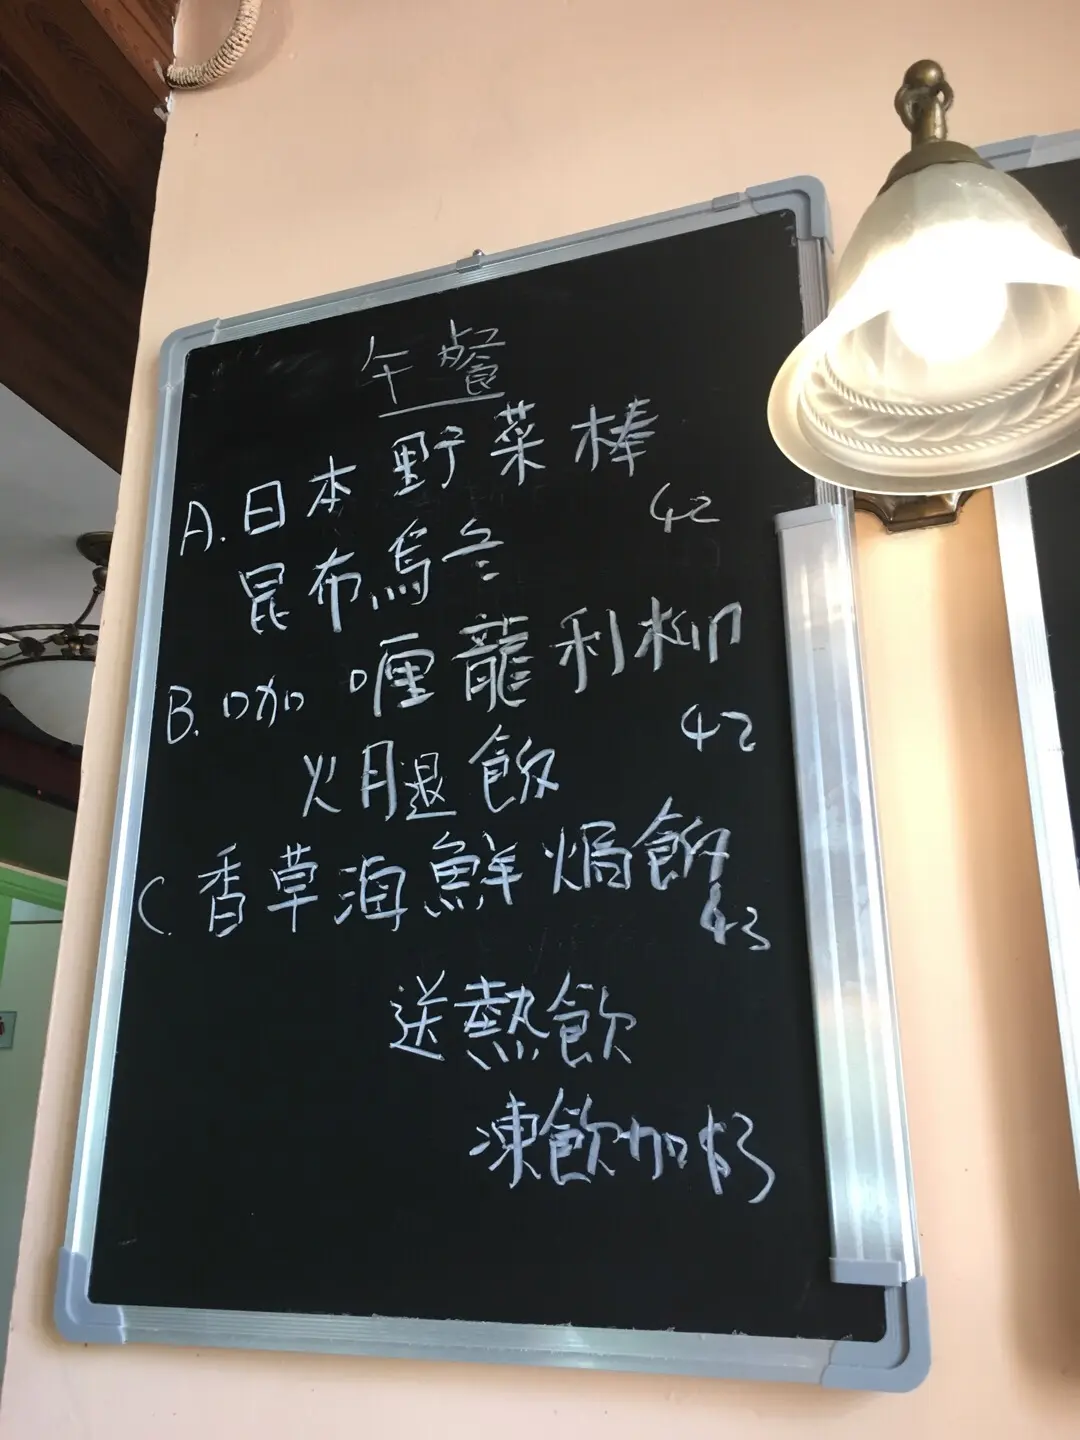 午餐
A. 日本野菜棒
昆布烏冬 42
B. 咖喱龍利柳
火腿飯 42
C. 香草海鮮焗飯
43
送熱飲
凍飲加$3